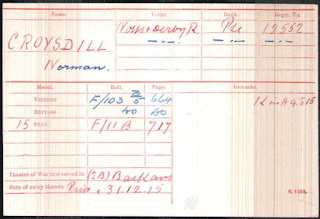 Name. Corps. Rank. Regtl. No.
CROYSDILL Notts & Derby R. Pte 12552
Norman. —"— —"—
Medal. Roll. Page. Remarks.
VICTORY F/103 B5 664 K in A 9.8.15
BRITISH do do
15 STAR F/11 B 717
Theatre of War first served in (2B) Balkans
Date of entry therein Prior 31.12.15
K. 1380.